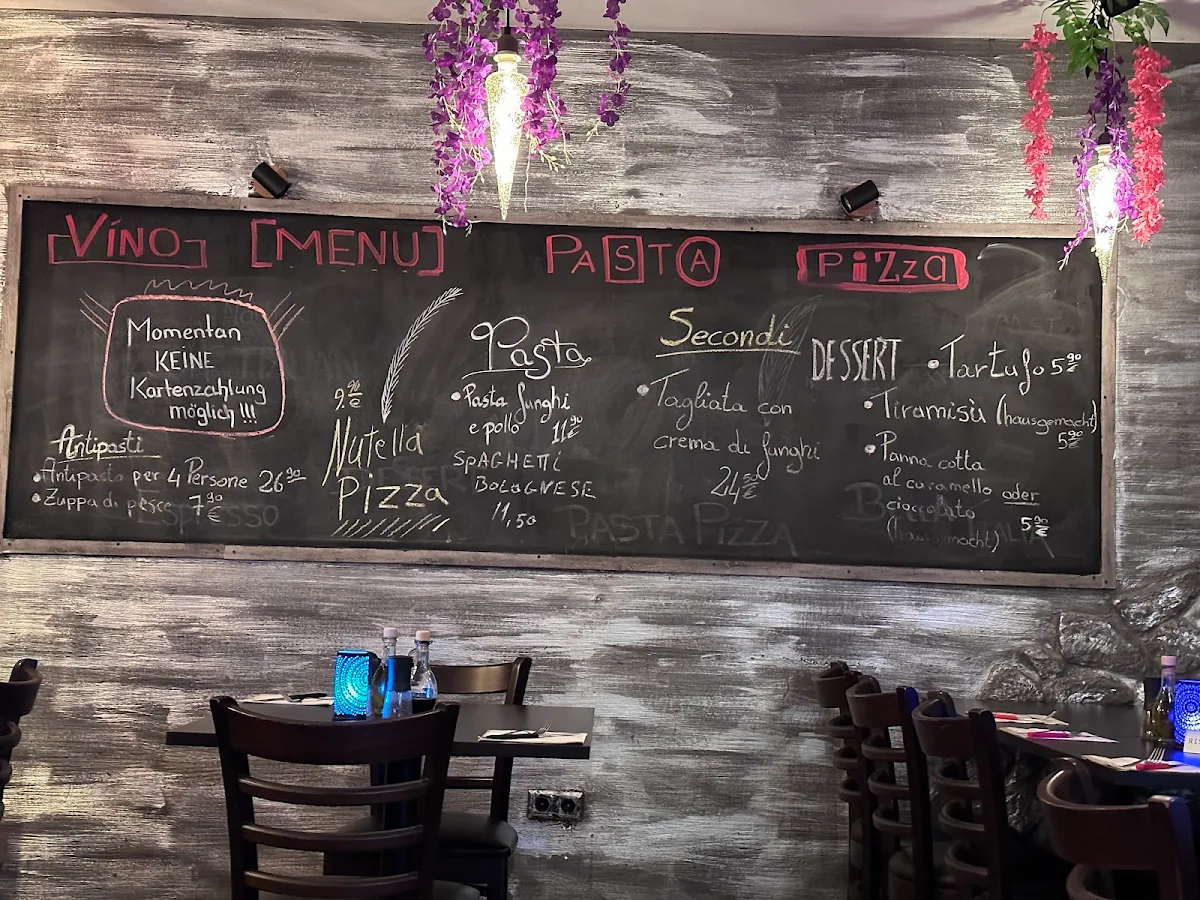 VINO
[MENU]
PASTA
PiZza
Momentan
KEINE
Kartenzahlung
möglich !!!
Antipasti
• Antipasto per 4 Persone 26,90
• Zuppa di pesce 7,90 €
9,90 €
Nutella
Pizza
Pasta
• Pasta funghi
e pollo 11,90 €
SPAGHETTI
BOLOGNESE
11,50
Secondi
• Tagliata con
crema di funghi
24,50 €
DESSERT
• Tartufo 5,90 €
• Tiramisù (hausgemacht)
5,90 €
• Panna cotta
al caramello oder
cioccolato
(hausgemacht) 5,90 €
ESPRESSO
PASTA PIZZA
BELLA ITALIA